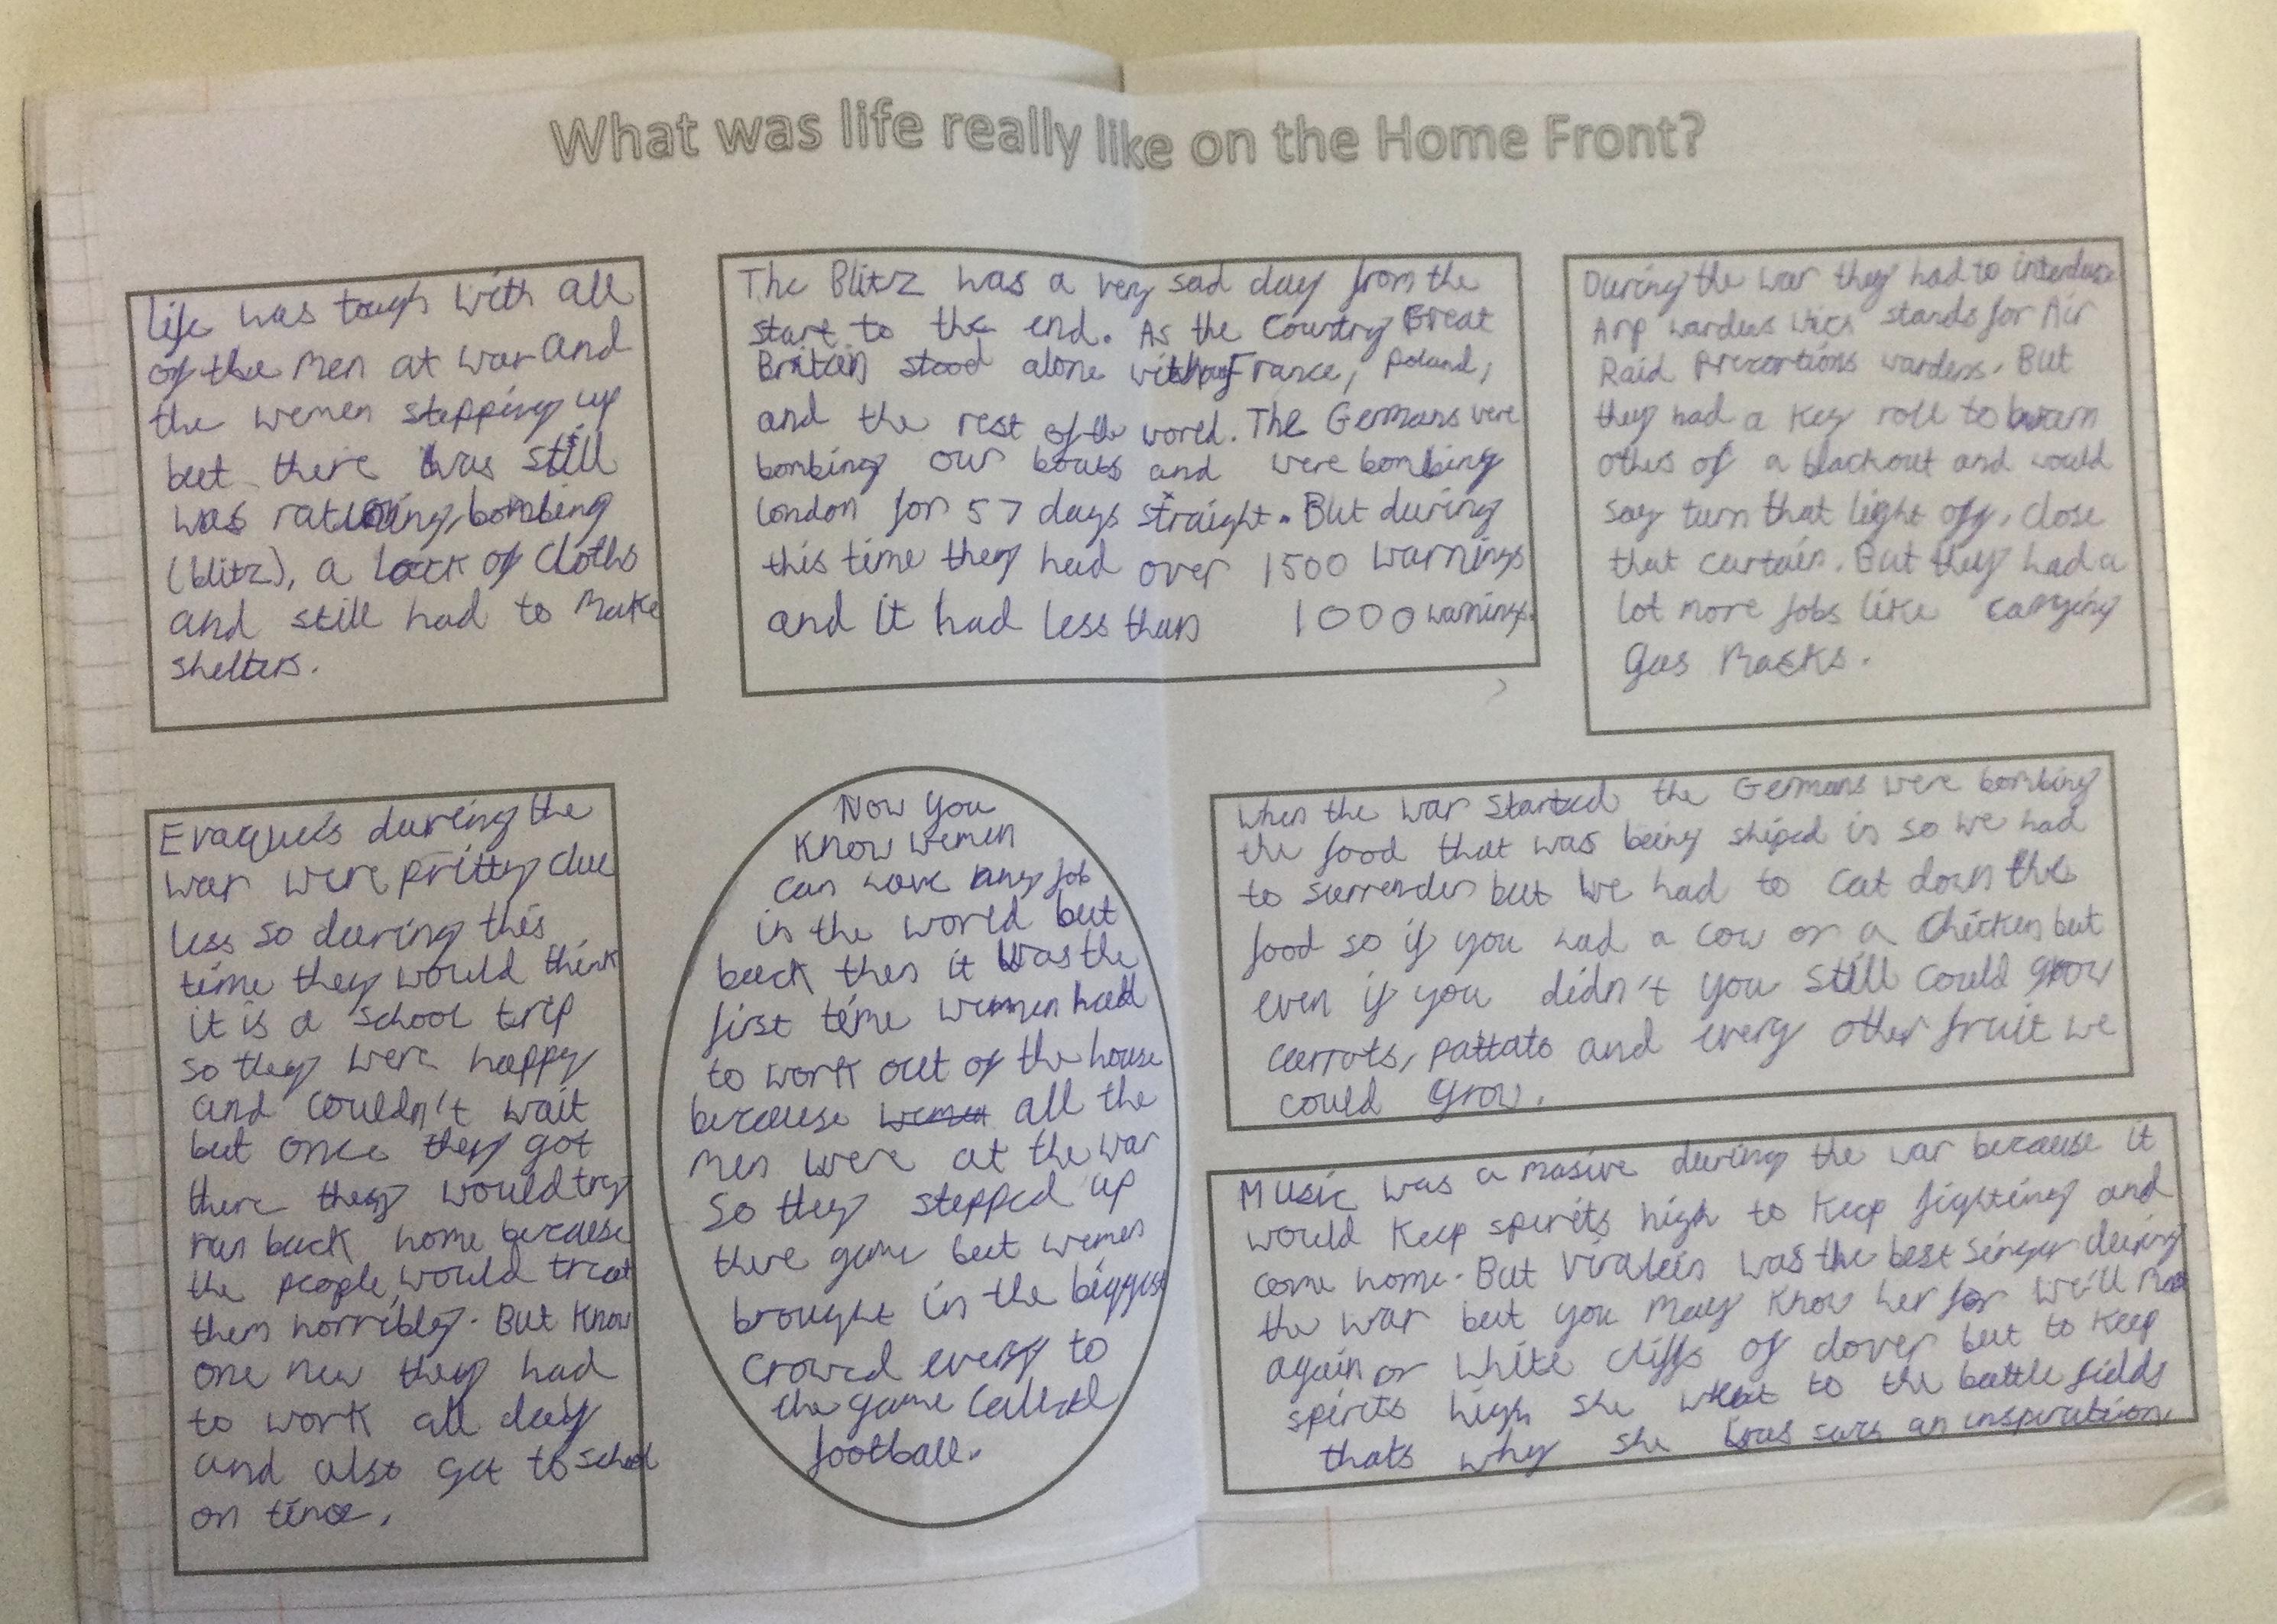 What was life really like on the Home Front?
Life was tough with all
of the men at war and
the wemen stepping up
but there was still
was rationing, bombing
(blitz), a lack of cloths
and still had to make
shelters.
The Blitz was a very sad day from the
start to the end. As the Country Great
Britain stood alone without France, Poland,
and the rest of the world. The Germans were
bombing our boats and were bombing
london for 57 days straight. But during
this time they had over 1500 warnings
and it had less than 1000 warnings.
During the war they had to interduse
Arp wardens wich stands for Air
Raid Precortions wardens. But
they had a key roll to warn
others of a blackout and would
say turn that light off, close
that curtain. But they had a
lot more jobs like carrying
gas masks.
Evaquees during the
war were pritty clue
less so during this
time they would think
it is a school trip
so they were happy
and couldn't wait
but once they got
there they would try
run back home because
the people would treat
them horribley. But know
one new they had
to work all day
and also get to school
on time.
Now you
know wemen
can have any job
in the world but
back then it was the
first time wemen had
to work out of the house
because wemen all the
men were at the war
So they stepped up
there game but wemen
brought in the biggest
crowd every to
the game called
football.
When the war started the Germans were bombing
the food that was being shiped in so we had
to surrender but we had to cut down the
food so if you had a cow or a chicken but
even if you didn't you still could grow
carrots, pattato and every other fruit we
could grow.
Music was a masive during the war because it
would keep spirits high to keep fighting and
come home. But Viralein was the best singer during
the war but you may know her for we'll
again or white cliffs of dover but to keep
spirits high she went to the battle fields
thats why she was such an inspiration.